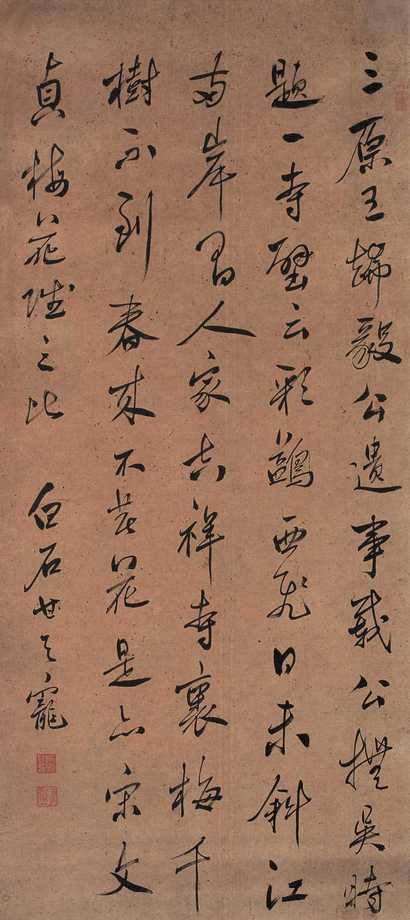 三原王端毅公遺事載公撫吳時
題一寺壁云彩鷁西飛日未斜江
岸人家吉祥寺裏梅千
樹不到春來不花是亦宋文
貞梅花賦之比 白石寵